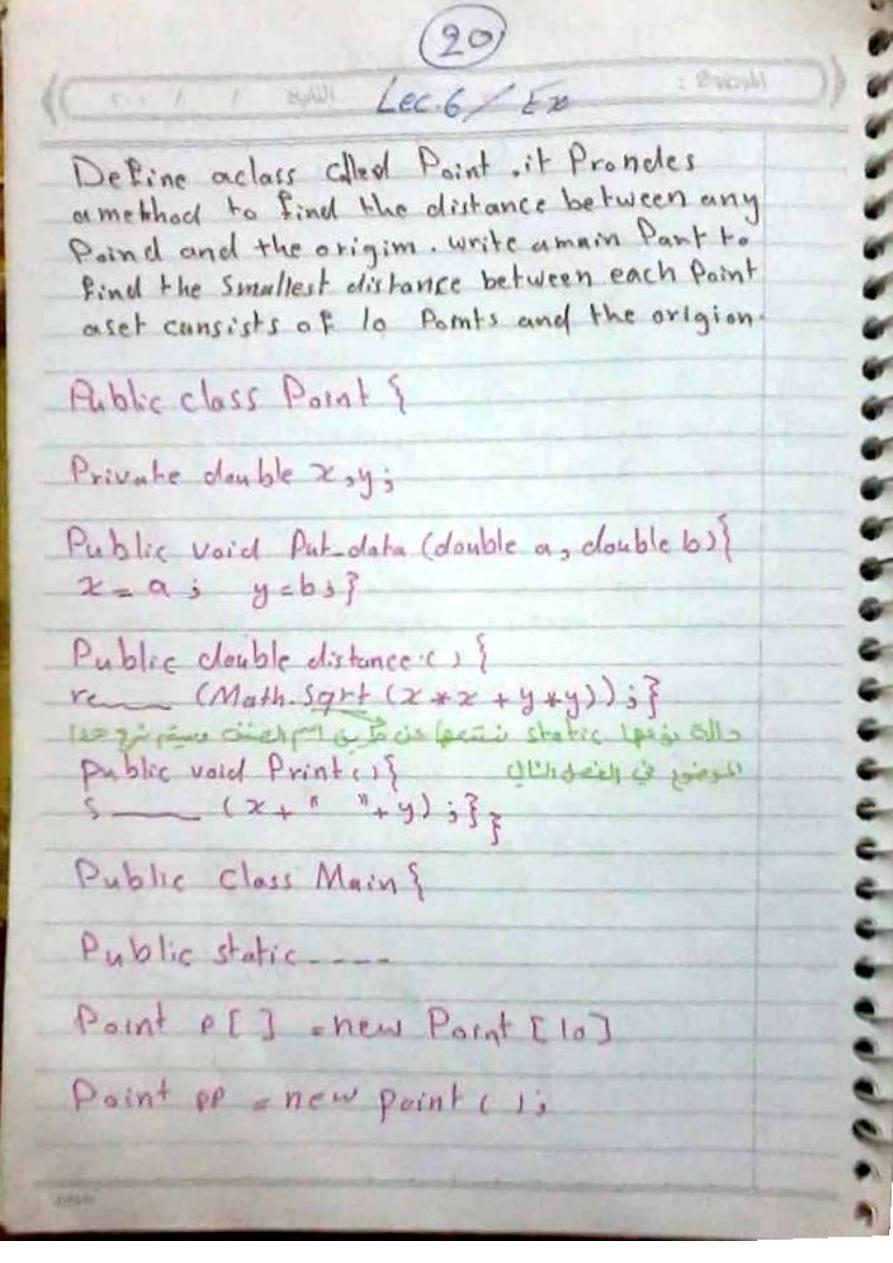 20
الموضوع :
التاريخ / /
Lec.6 / Ex
Define a class called Point . it Prondes
a methhod to find the distance between any
Poind and the origim . write a main Part to
find the smallest distance between each Point
aset cunsists of 10 Pomts and the origion.
Public class Point {
Private double x,y;
Public void Put_data (double a, double b){
x = a ; y = b ; }
Public double distance () {
re____ (Math.Sqrt (x*x + y*y)) ; }
دالة نوعها static نستدعيها عن طريق اسم الصنف وسيتم شرح هذا
الموضوع في الفصل الثاني
public void Print () {
S____ (x + " " + y) ; } }
Public class Main {
Public static ----
Point p [ ] = new Point [10]
Point pp = new point ( ) ;